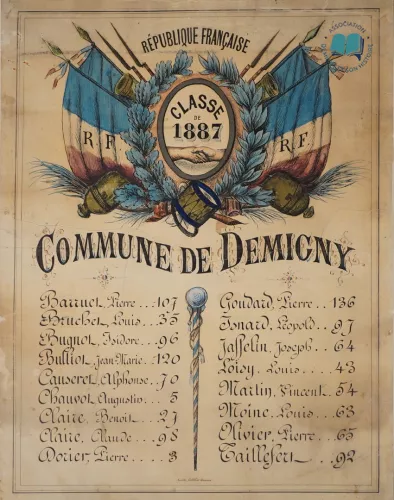 RÉPUBLIQUE FRANÇAISE
ASSOCIATION
CLASSE
DE
1887
R F
R F
COMMUNE DE DEMIGNY
Barruet, Pierre...107
Bruchet, Louis...35
Bugnot, Isidore...96
Bulliot, Jean-Marie...120
Causeret, Alphonse...70
Chauvot, Augustin...5
Claire, Benoit...27
Claire, Claude...98
Dorier, Pierre...3
Goudard, Pierre...136
Isnard, Léopold...97
Jasselin, Joseph...64
Loisy, Louis...43
Martin, Vincent...54
Moine, Louis...63
Olivier, Pierre...65
Taillefert...92